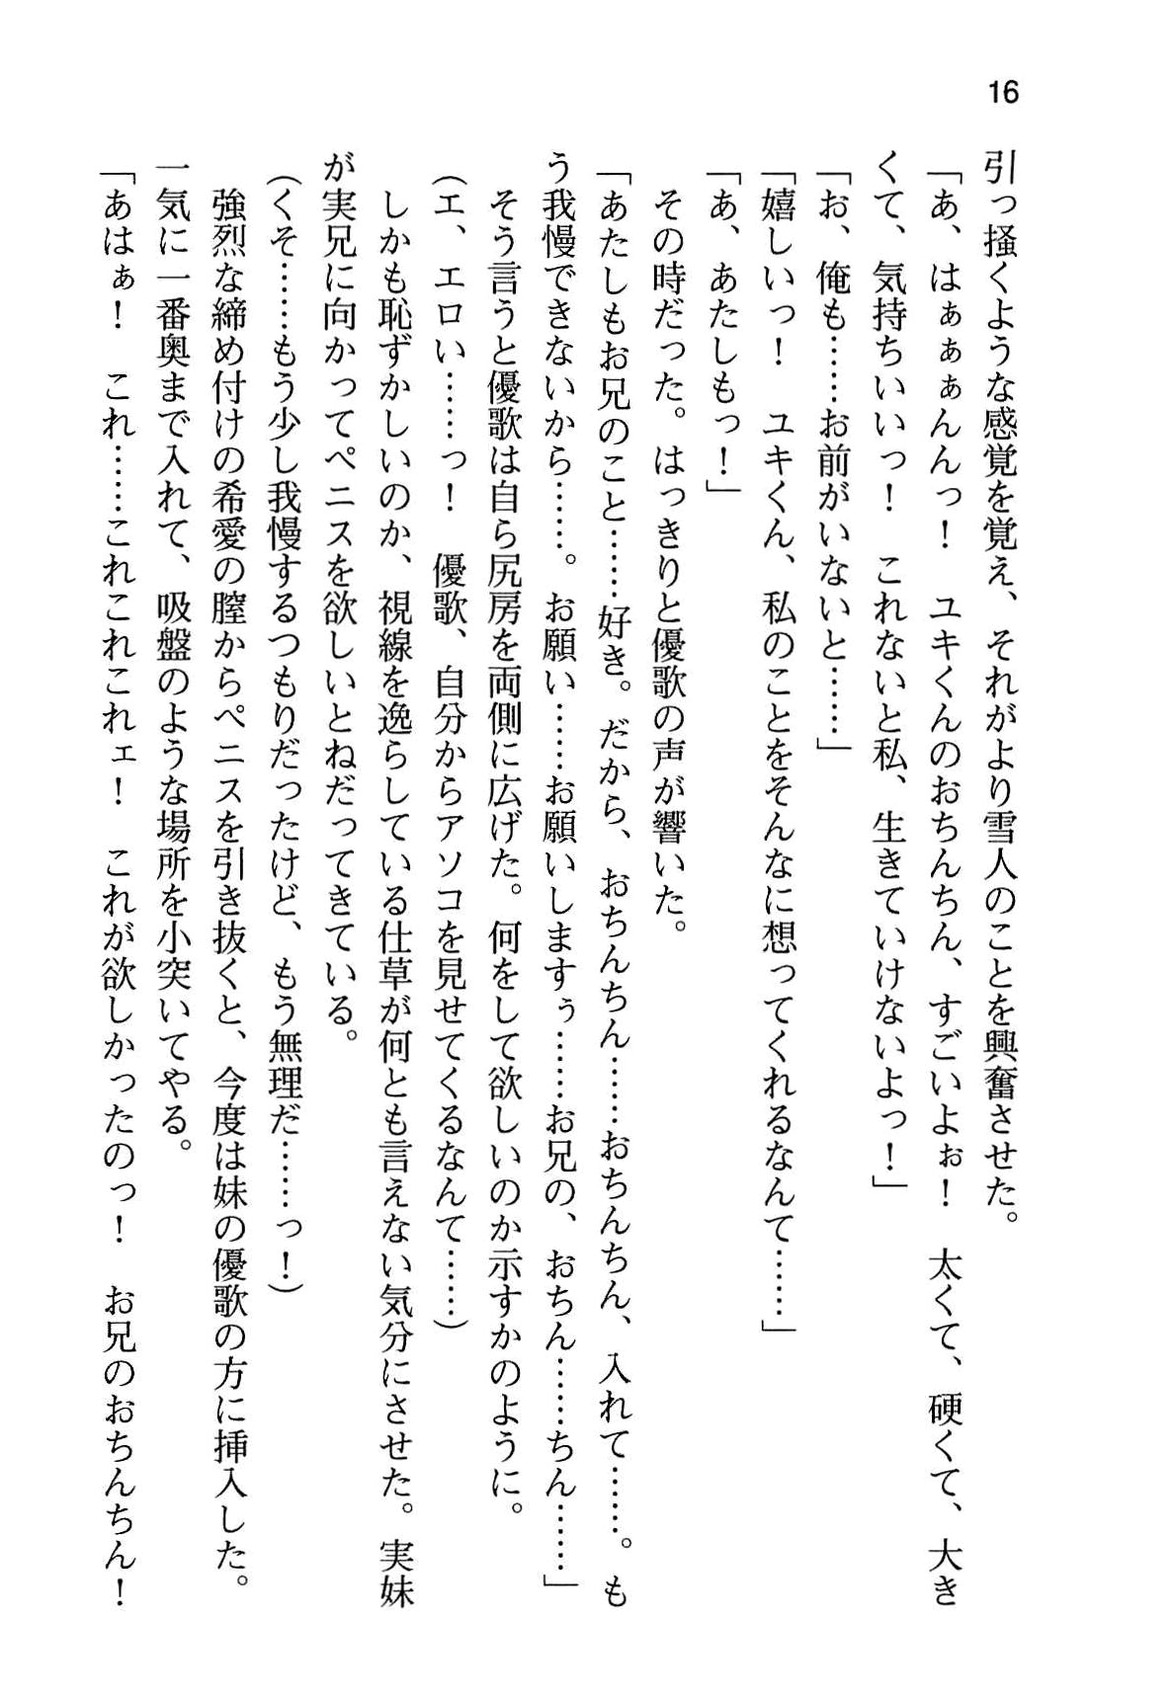 16
引っ掻くような感覚を覚え、それがより雪人のことを興奮させた。
「あ、はぁぁぁんんっ！　ユキくんのおちんちん、すごいよぉ！　太くて、硬くて、大き
くて、気持ちいいっ！　これないと私、生きていけないよっ！」
「お、俺も……お前がいないと……」
「嬉しいっ！　ユキくん、私のことをそんなに想ってくれるなんて……」
「あ、あたしもっ！」
その時だった。はっきりと優歌の声が響いた。
「あたしもお兄のこと……好き。だから、おちんちん……おちんちん、入れて……。も
う我慢できないから……。お願い……お願いしますぅ……お兄の、おちん……ちん……」
そう言うと優歌は自ら尻房を両側に広げた。何をして欲しいのか示すかのように。
（エ、エロい……っ！　優歌、自分からアソコを見せてくるなんて……）
しかも恥ずかしいのか、視線を逸らしている仕草が何とも言えない気分にさせた。実妹
が実兄に向かってペニスを欲しいとねだってきている。
（くそ……もう少し我慢するつもりだったけど、もう無理だ……っ！）
強烈な締め付けの希愛の膣からペニスを引き抜くと、今度は妹の優歌の方に挿入した。
一気に一番奥まで入れて、吸盤のような場所を小突いてやる。
「あはぁ！　これ……これこれこれェ！　これが欲しかったのっ！　お兄のおちんちん！